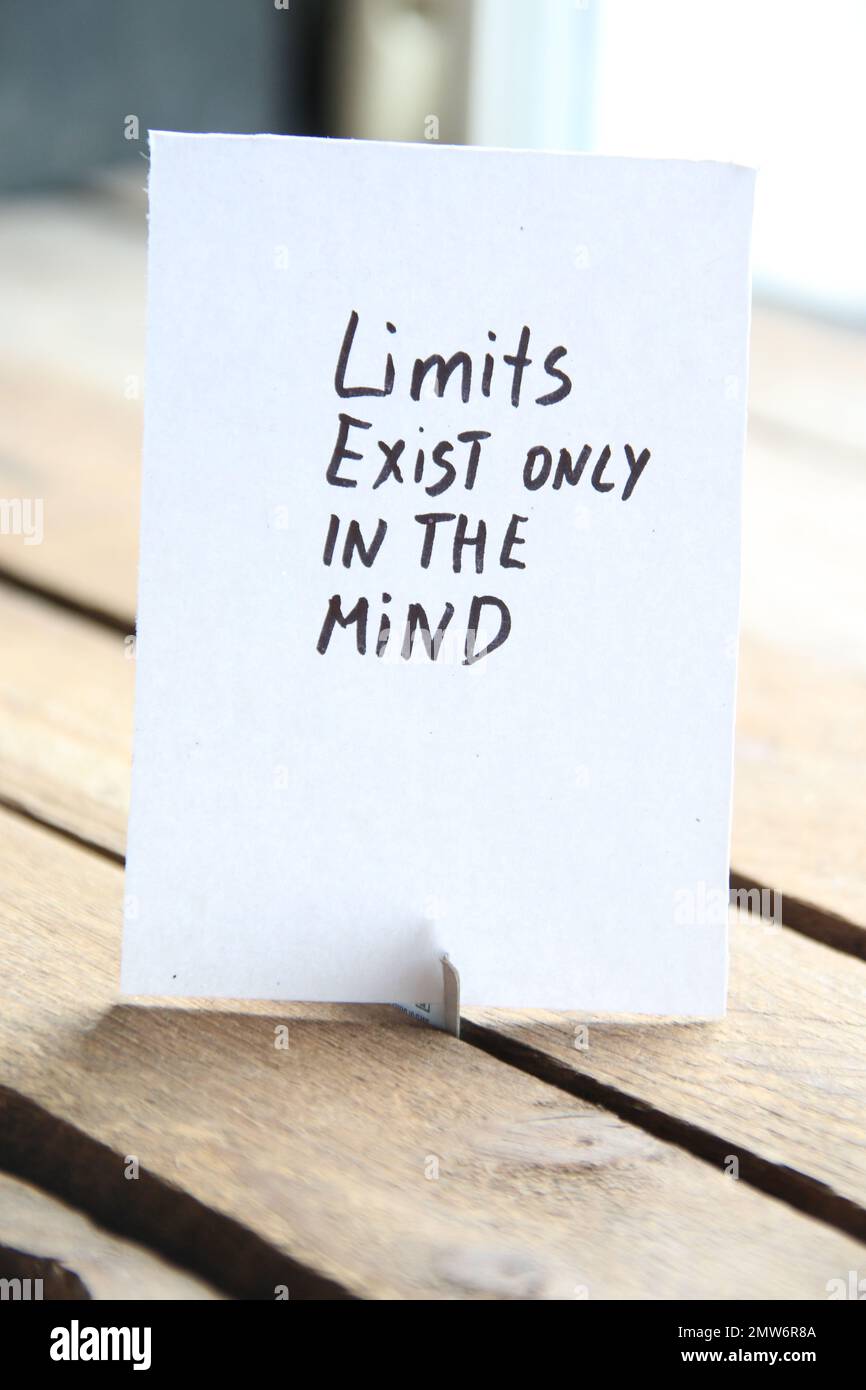 Limits
Exist only
in the
Mind
alamy
Image ID: 2MW6R8A
www.alamy.com